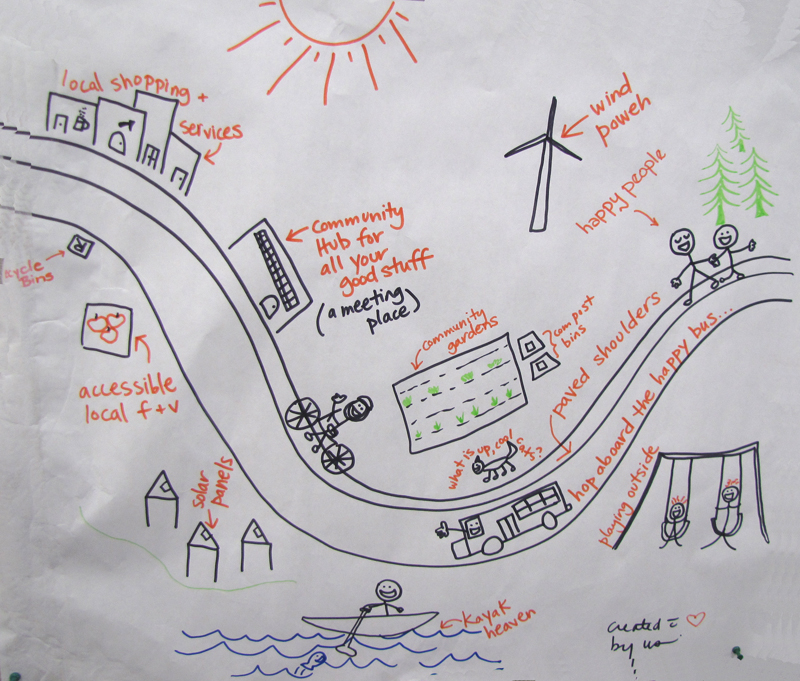 local shopping +
services
wind
poweh
happy people
Community
Hub for
all your
good stuff
(a meeting
place)
cycle
Bins
accessible
local f+v
community
gardens
compost
bins
paved shoulders
hop aboard the happy bus...
what is up, cool
cats?
playing outside
solar
panels
kayak
heaven
created =
by us
!